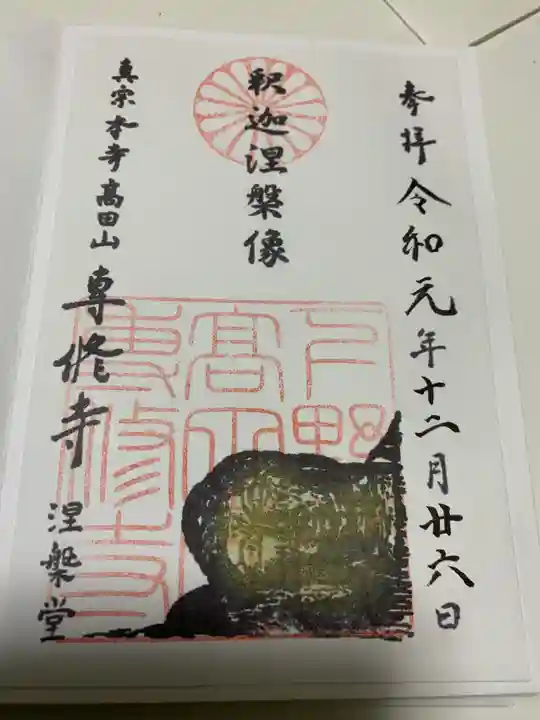 奉拝 令和元年十二月廿六日
釈迦涅槃像
真宗本寺高田山 専修寺 涅槃堂
下野
高田
専修寺